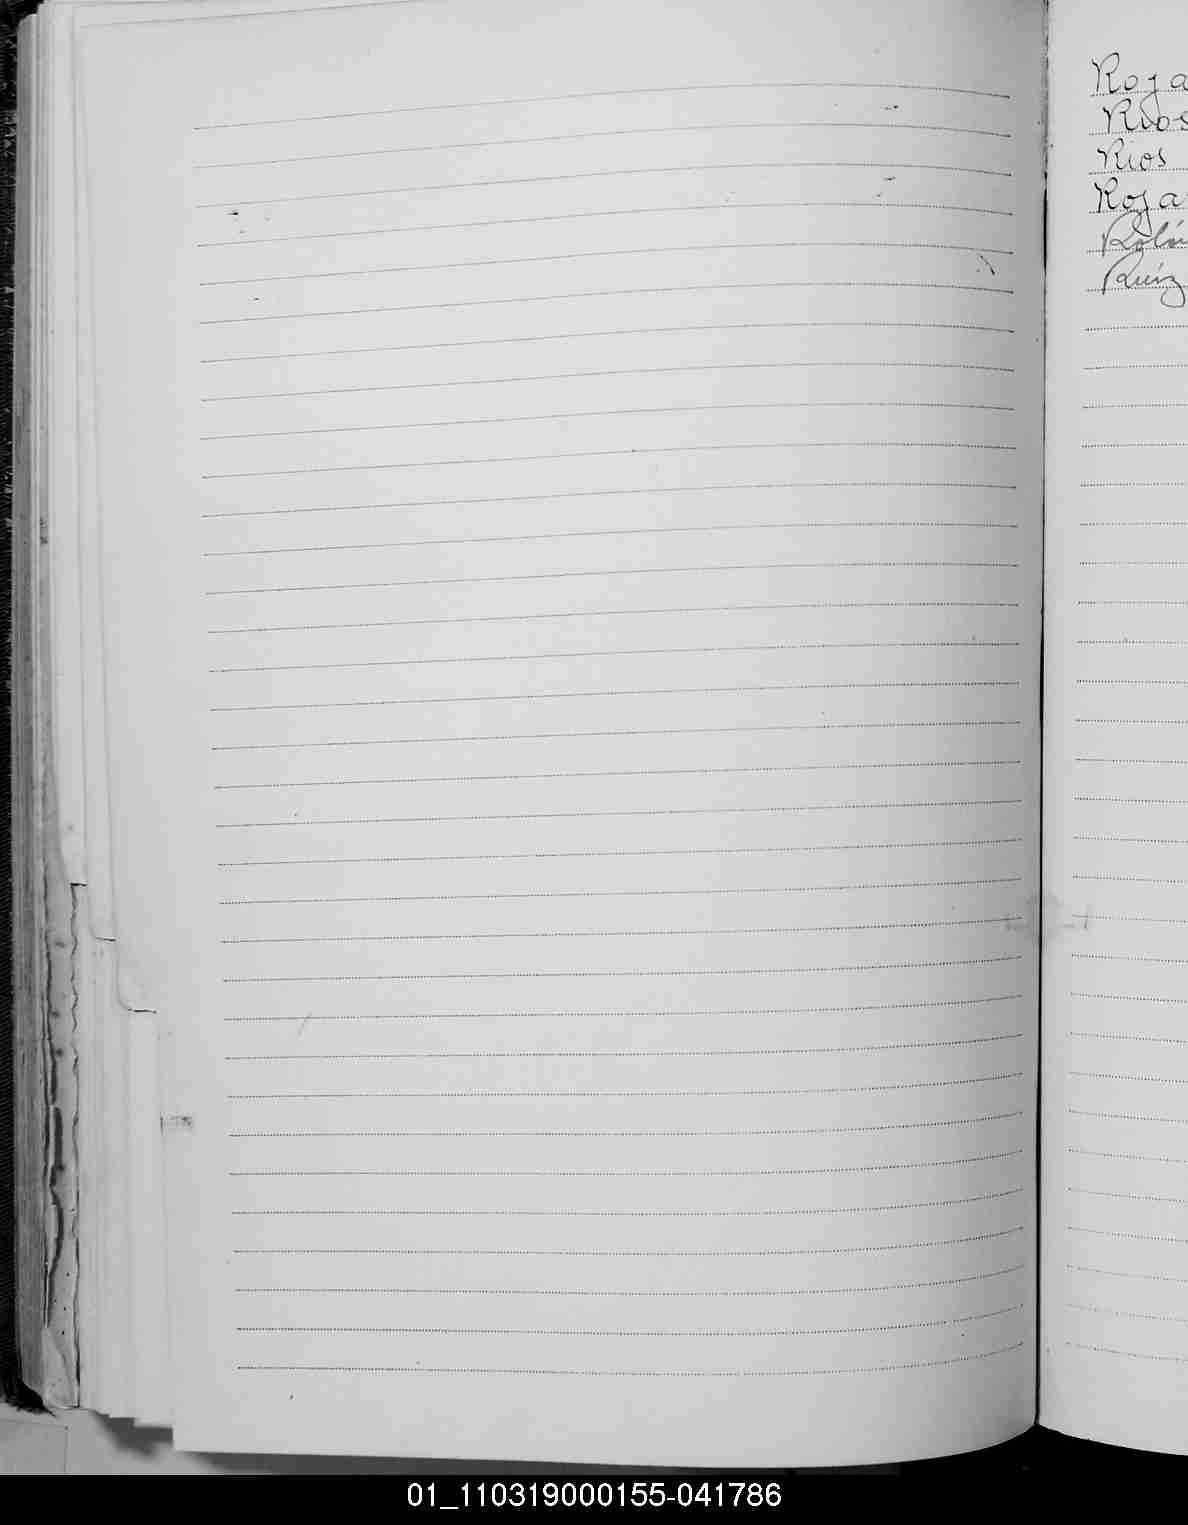 Roja
Rios
Rios
Roja
Ruiz
01_110319000155-041786